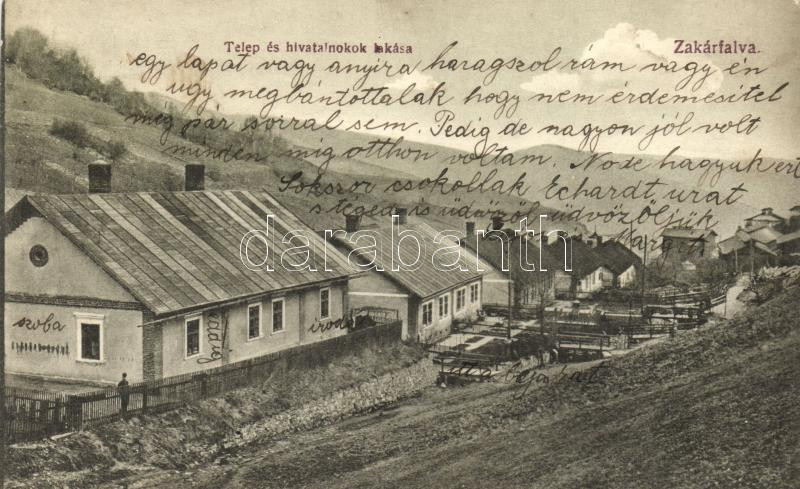 Telep és hivatalnokok lakása
Zakárfalva.
egy lapat vagy anyira haragszol rám vagy én
ugy megbántottalak hogy nem érdemesitel
még pár sorral sem. Pedig de nagyon jól volt
minden mig otthon voltam. No de hagyuk ezt
Sokszor csokollak Echardt urat
s téged is üdvözöl üdvözöljük
Margit
darabanth
szoba
iroda
itt a bejárat